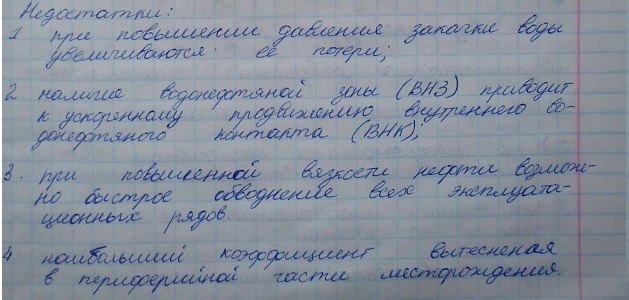 Недостатки:
1 при повышении давления закачки воды
увеличиваются ее потери;
2 наличие водонефтяной зоны (ВНЗ) приводит
к ускоренному продвижению внутреннего во-
донефтяного контакта (ВНК);
3. при повышенной вязкости нефти возмож-
но быстрое обводнение всех эксплуата-
ционных рядов.
4 наибольший коэффициент вытеснения
в периферийной части месторождения.